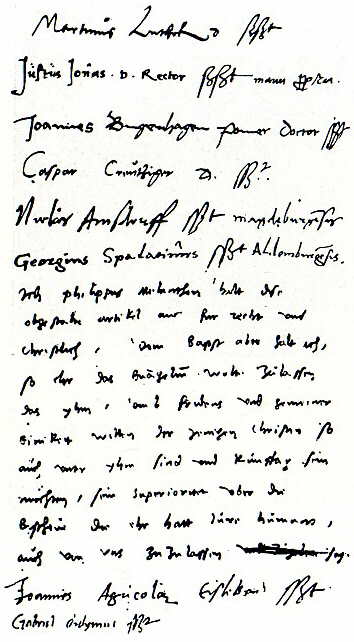 Martinus Luther D sßt
Justus Jonas . D. Rector sßt manu ppria.
Joannes Bugenhagen pomer doctor sßt
Caspar Creutziger D. sßt.
Niclas Amsdorff sßt magdeburgeñ
Georgius Spalatinus sßt Aldenburgeñ.
Ich philippus Melanthon halt dise
obgestalte artikel auch fur recht und
christlich, vom Bapst aber halt ich,
so ehr das Euãgeliũ wolte zulassen,
das yhm, umb fridens und gemeiner
Einikeit willen der jenigen christen so
auch unter yhm sind und kunfftig sein
mochten, sein superioritet uber die
Bischoffe die ehr hatt iure humano,
auch von uns zuzulassen sey.
Joannes Agricola Eisleben sßt.
Gabriel didymus sßt